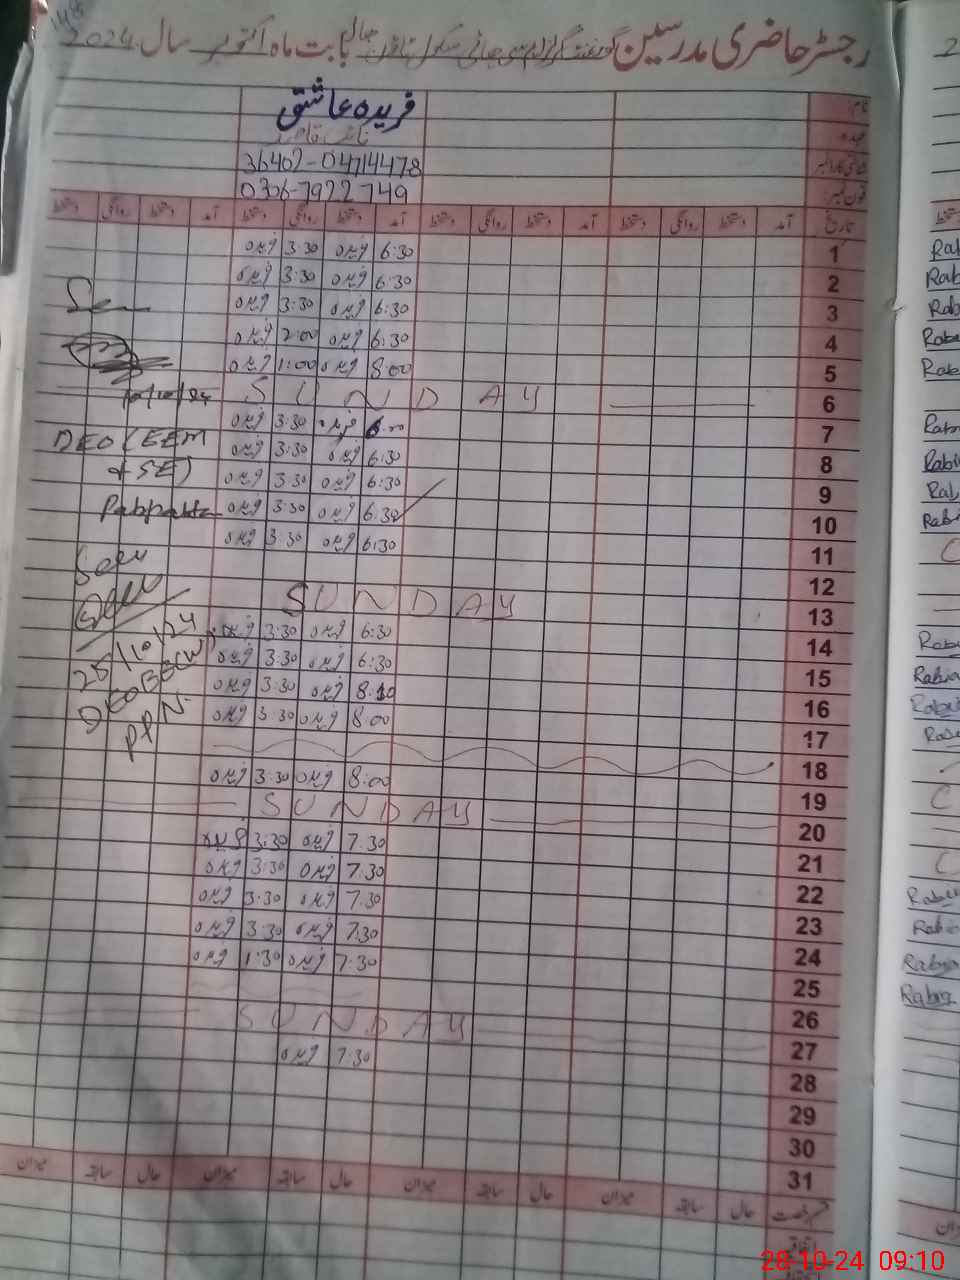 رجسٹر حاضری مدرسین گورنمنٹ گرلز ایم سی ہائی سکول بابت ماہ اکتوبر سال 2024
نام:
فریدہ عاشق
عہدہ:
نائب قاصد
شناختی کارڈ نمبر
36402-04714478
فون نمبر:
0306-7922749
تاریخ آمد دستخط روانگی دستخط آمد دستخط روانگی دستخط آمد دستخط روانگی دستخط دستخط روانگی دستخط
1 6:30 فریدہ 3:30 فریدہ
2 6:30 فریدہ 3:30 فریدہ
3 6:30 فریدہ 3:30 فریدہ
4 6:30 فریدہ 2:00 فریدہ
5 8:00 فریدہ 1:00 فریدہ
6 SUNDAY
10/10/24
7 فریدہ 3:30 فریدہ
8 6:30 فریدہ 3:30 فریدہ
DEO (EEM
9 6:30 فریدہ 3:30 فریدہ
& SE)
10 6:30 فریدہ 3:30 فریدہ
Pakpattan
11 6:30 فریدہ 3:30 فریدہ
12
Seen
13 SUNDAY
14 6:30 فریدہ 3:30 فریدہ
25/10/24
15 6:30 فریدہ 3:30 فریدہ
16 فریدہ 3:30 فریدہ
17 8:00 فریدہ 3:30 فریدہ
PPN.
18
19 8:00 فریدہ 3:30 فریدہ
20 SUNDAY
21 7.30 فریدہ 3:30 فریدہ
22 7.30 فریدہ 3:30 فریدہ
23 7.30 فریدہ 3:30 فریدہ
24 7.30 فریدہ 3:30 فریدہ
25 7.30 فریدہ 1:30 فریدہ
26
27 SUNDAY
28 7.30 فریدہ
29
30
31
حال سابقہ میزان حال سابقہ میزان حال سابقہ میزان حال سابقہ میزان
28-10-24 09:10